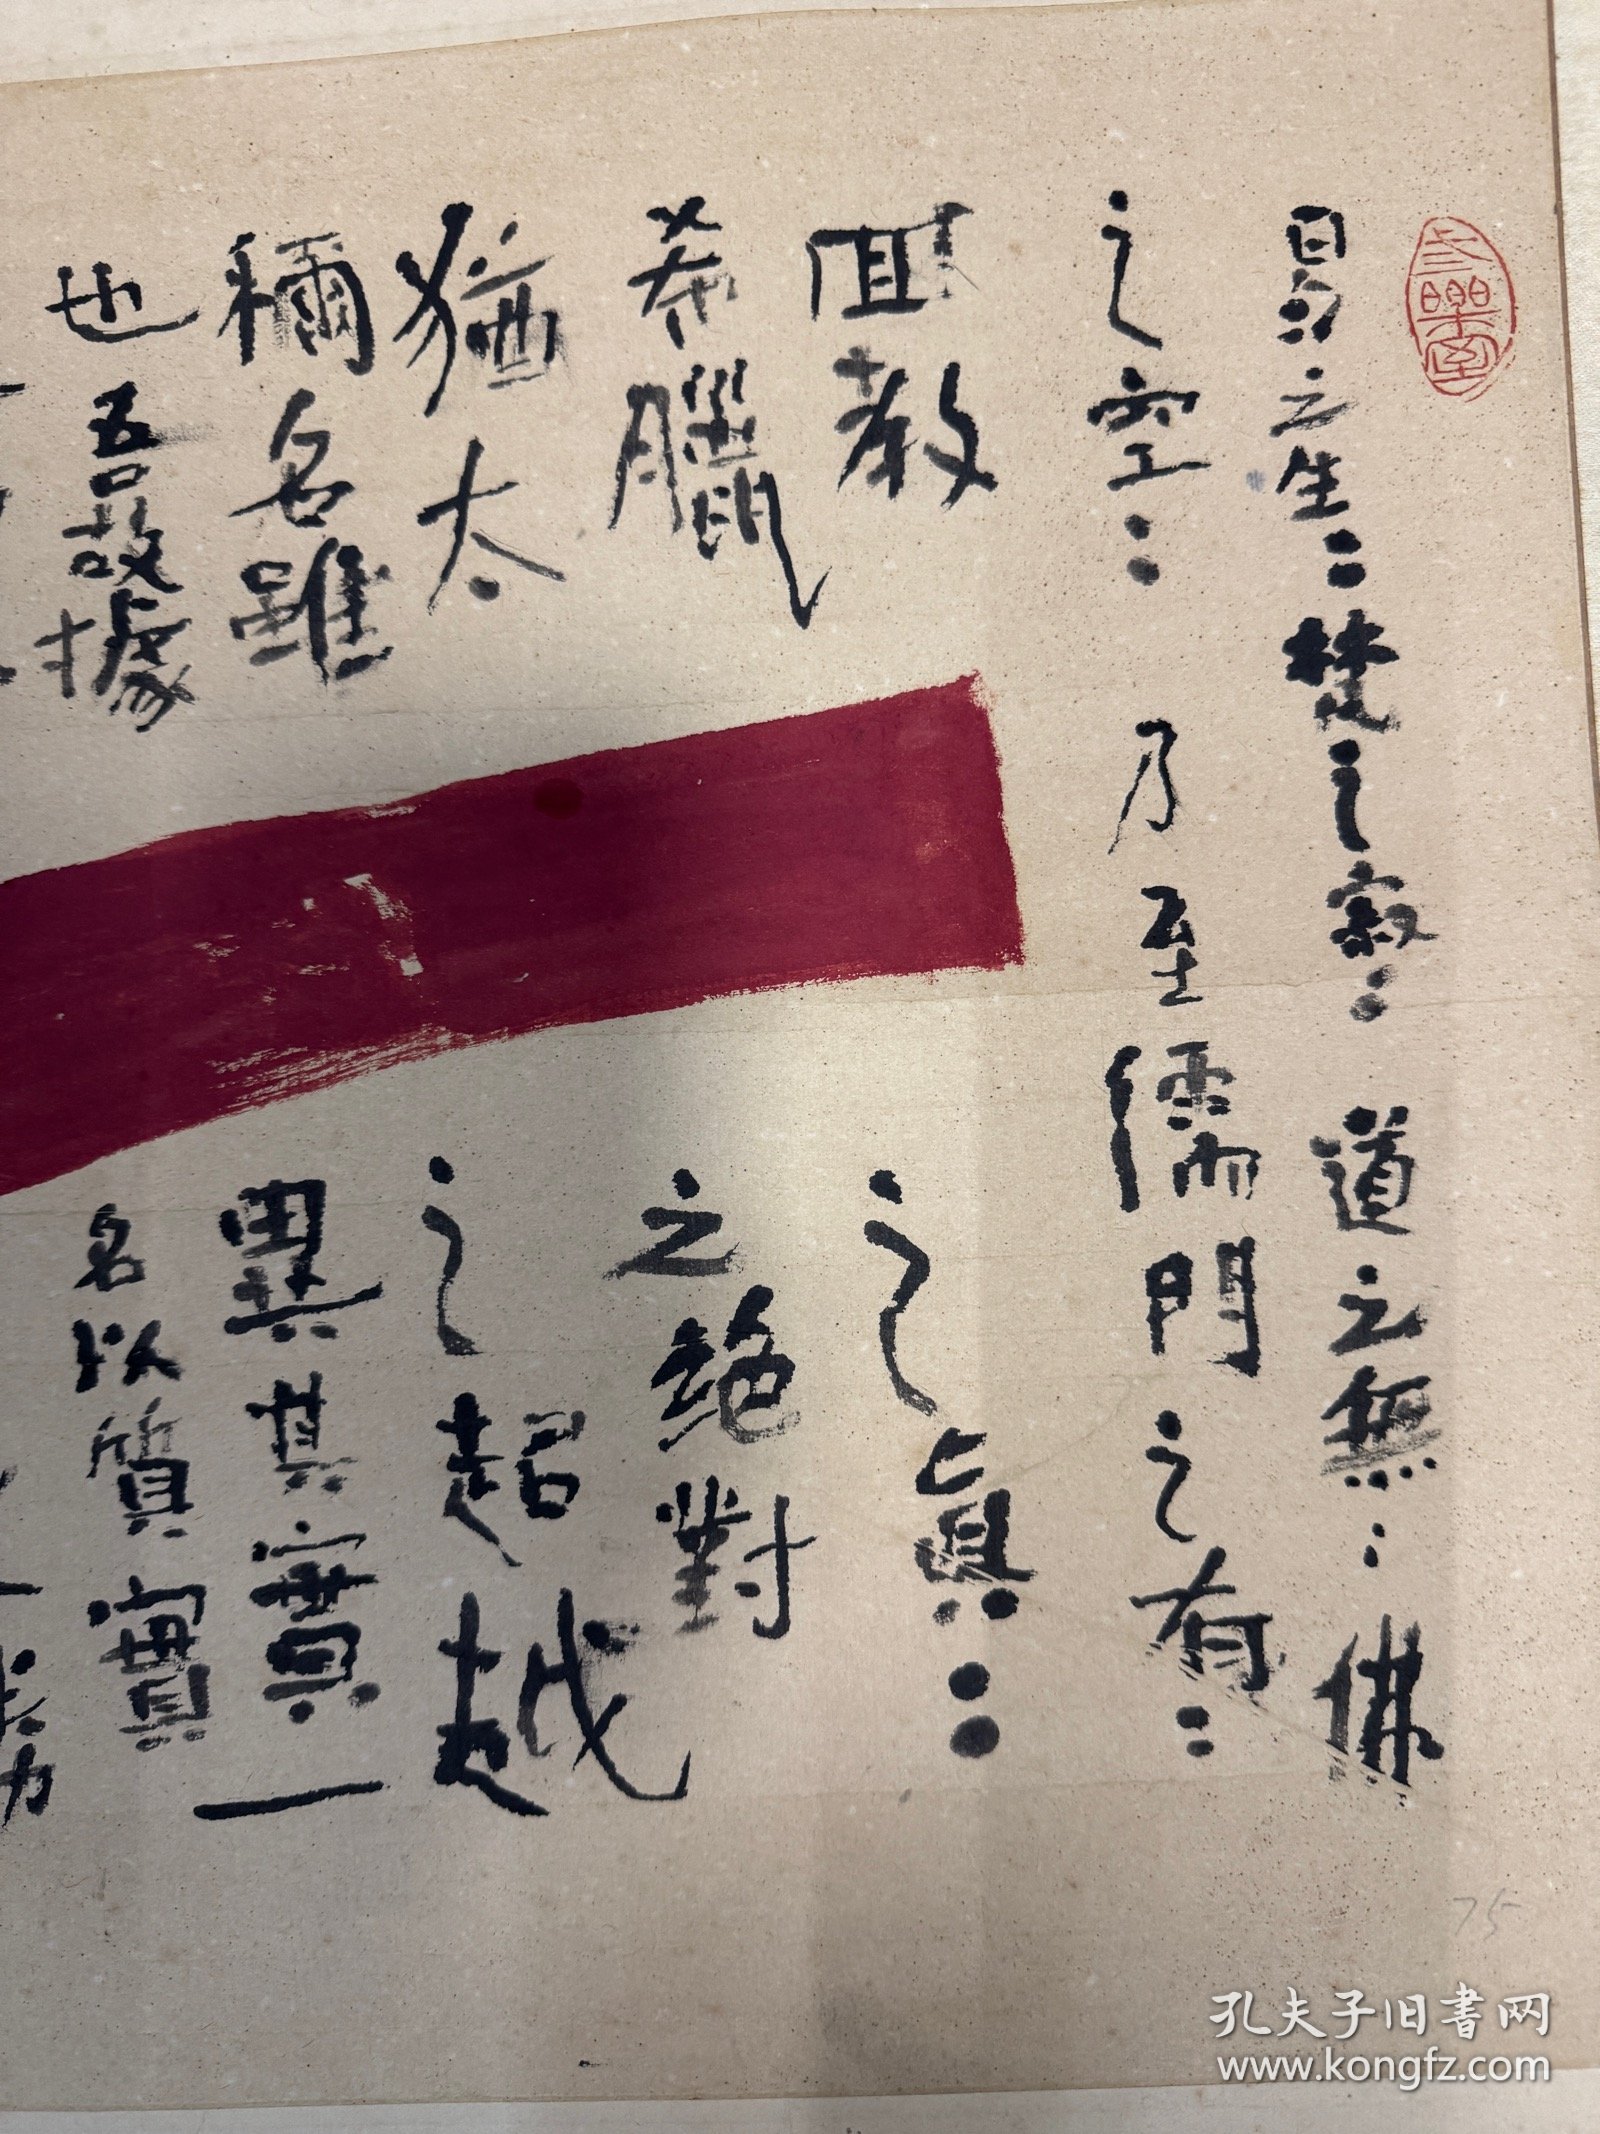 易之生二梵之寂二道之無二佛
之空二乃至儒門之有二
回教之真二
希臘之絕對
猶太之超越
稱名雖異其實一
也吾故據名以質實
75
孔夫子旧书网
www.kongfz.com